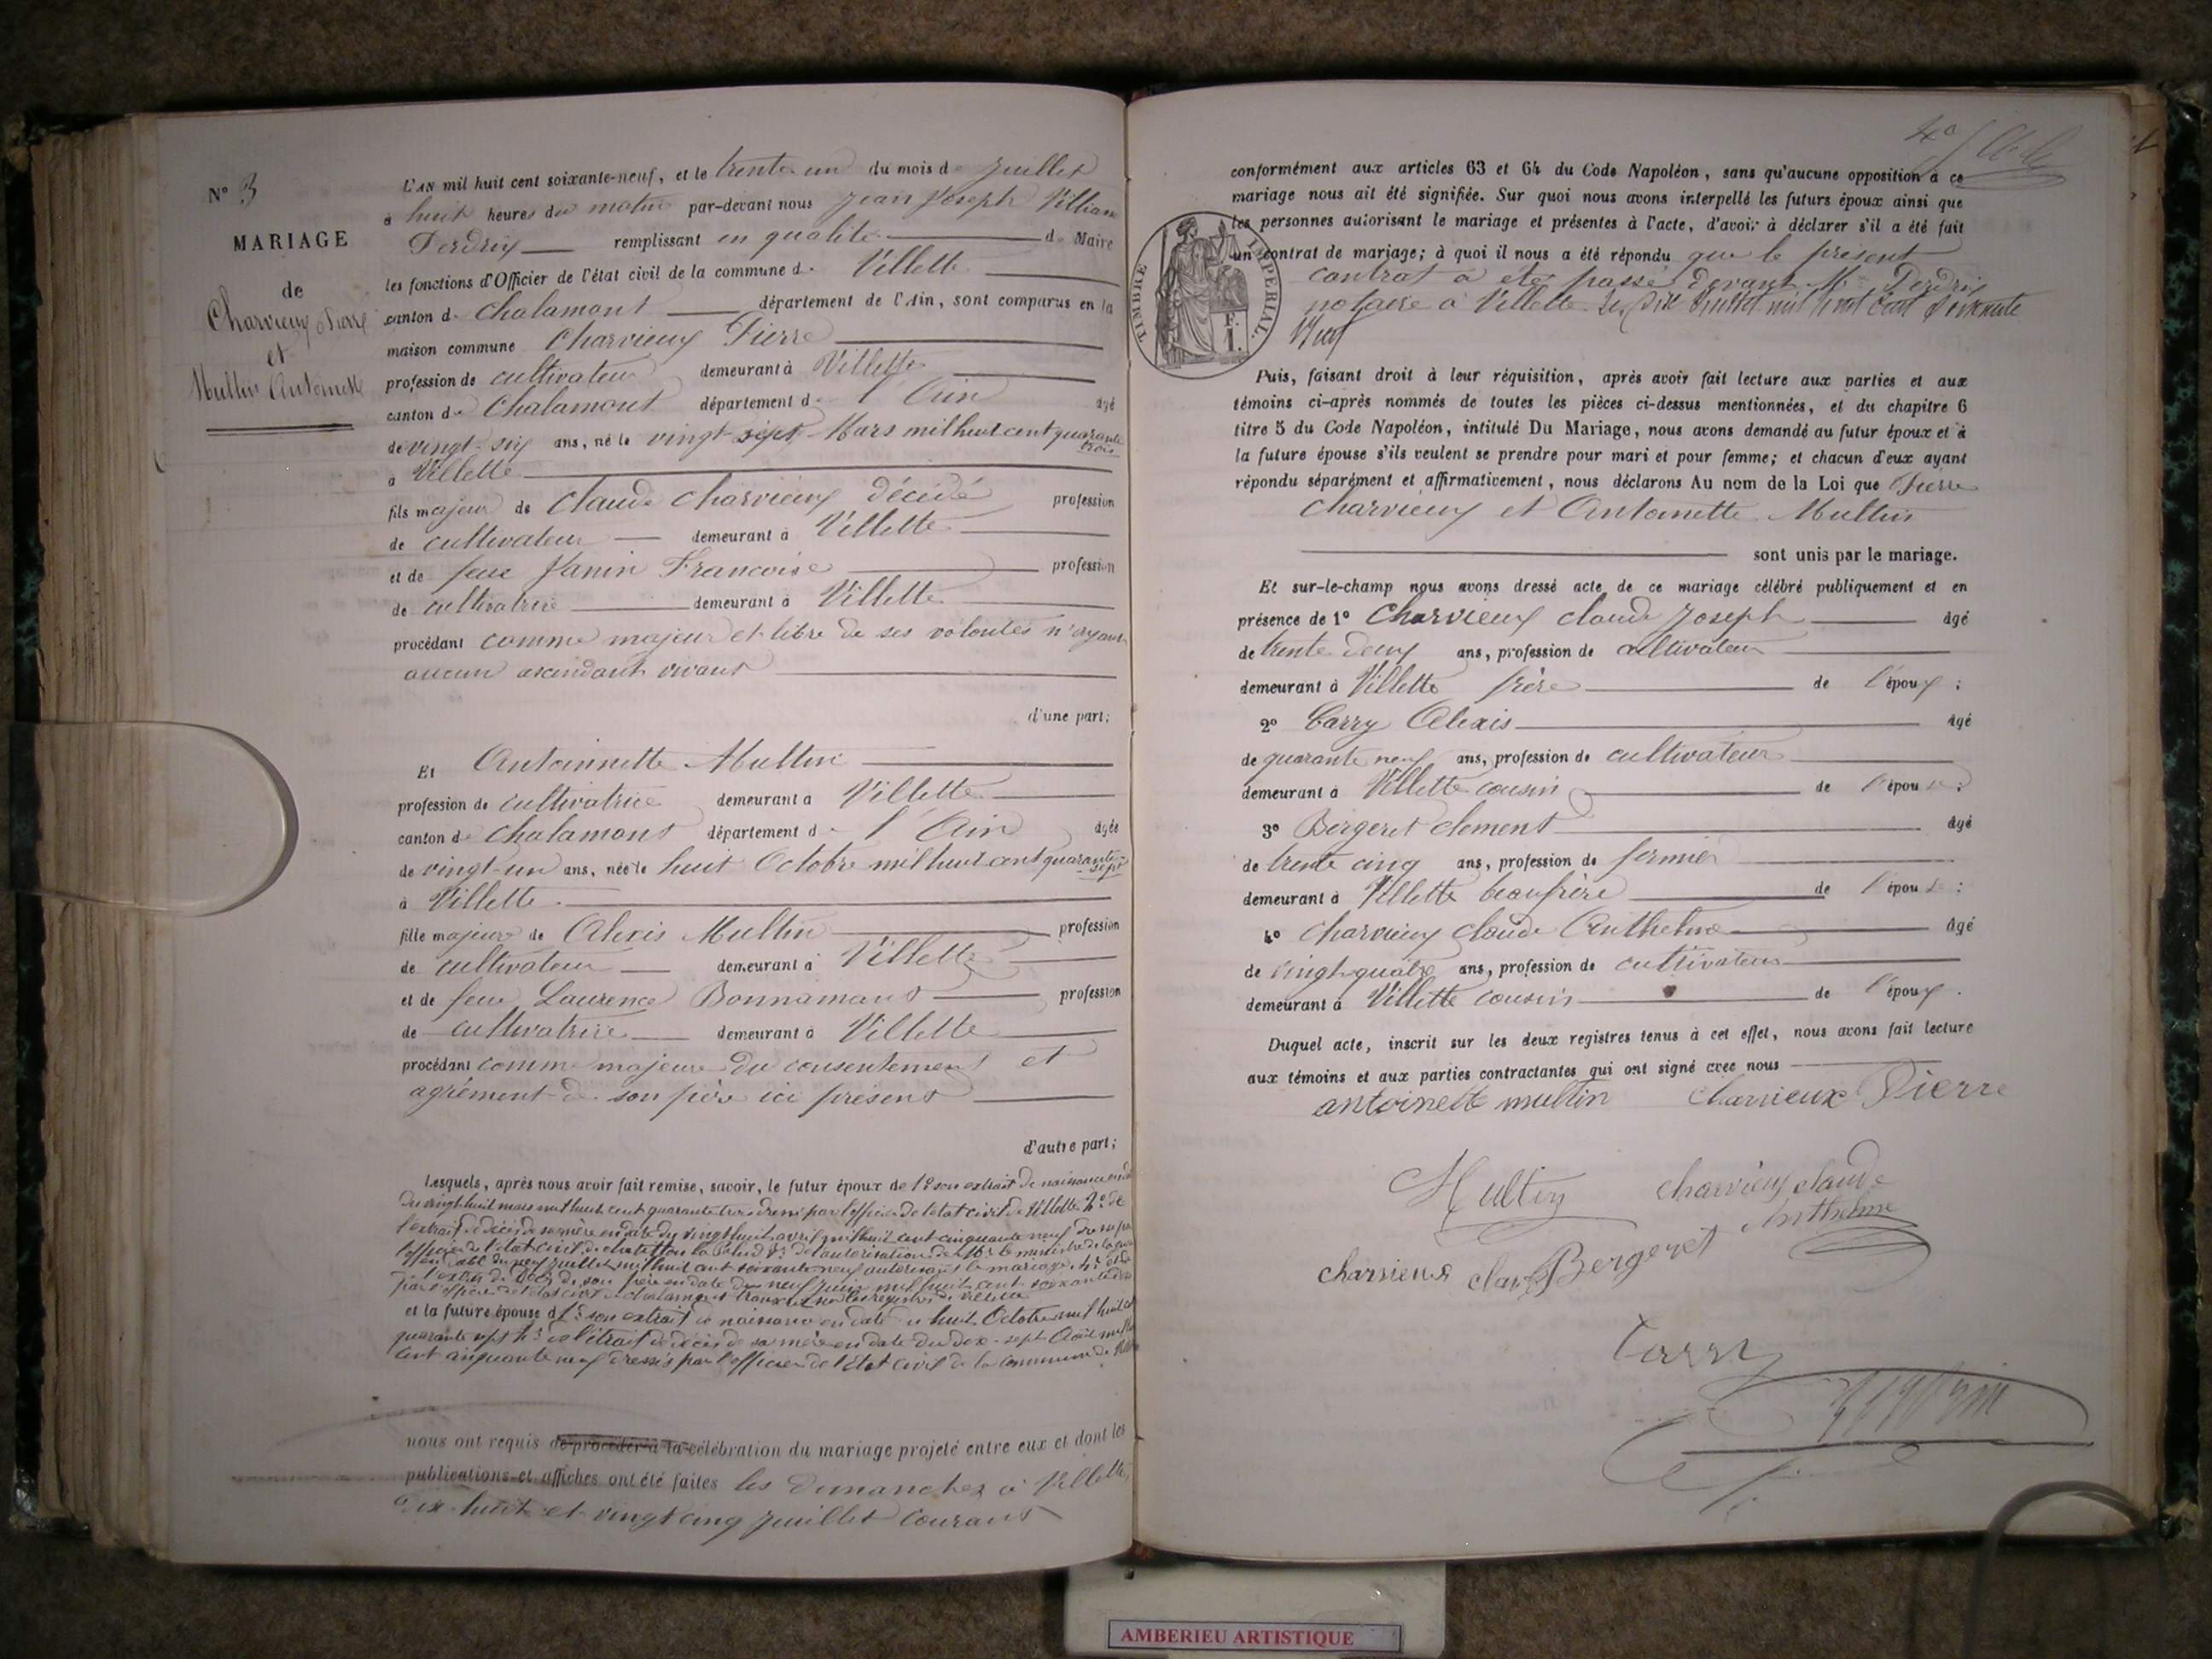 N° 3
MARIAGE
de
Charvieux Pierre
et
Multin Antoinette
L'AN mil huit cent soixante-neuf, et le trente un du mois de Juillet
à huit heures du matin par-devant nous Jean Joseph Villian
Perdrix remplissant en qualité de Maire
les fonctions d'Officier de l'état civil de la commune de Villette
canton de Chalamont département de l'Ain, sont comparus en la
maison commune Charvieux Pierre
profession de cultivateur demeurant à Villette
canton de Chalamont département de l'Ain âgé
de vingt-six ans, né le vingt-sept Mars mil huit cent quarante
trois
à Villette
fils majeur de Claude Charvieux décédé profession
de cultivateur demeurant à Villette
et de feue Janin Francoise profession
de cultivatrice demeurant à Villette
procédant comme majeur et libre de ses volontés n'ayant
aucun ascendant vivant
d'une part;
Et Antoinnette Multin
profession de cultivatrice demeurant à Villette
canton de Chalamont département de l'Ain âgée
de vingt-un ans, née le huit Octobre mil huit cent quarante-
sept
à Villette
fille majeure de Alexis Multin profession
de cultivateur demeurant à Villette
et de feue Laurence Bonnamant profession
de cultivatrice demeurant à Villette
procédant comme majeure du consentement et
agrément de son père ici présent
d'autre part;
Lesquels, après nous avoir fait remise, savoir, le futur époux de 1° son extrait de naissance en date
du vingt huit mars mil huit cent quarante trois dressé par l'officier de l'état civil de Villette 2° de
l'extrait de décès de sa mère en date du vingt huit avril mil huit cent cinquante neuf dressé par
l'officier de l'état civil de chatillon la Palud 3° de l'autorisation de Mr le ministre de la guerre
en date du neuf juillet mil huit cent soixante neuf autorisant le mariage, 4° et de
l'extrait de décès de son père en date du neuf juin mil huit cent soixante
par l'officier de l'état civil de chalamont transcrit sur les registres de Villette
et la future épouse de 1° son extrait de naissance en date du huit Octobre mil huit cent
quarante sept 2° de l'extrait de décès de sa mère en date du dix-sept Août mil huit
cent cinquante neuf dressés par l'officier de l'état civil de la commune de Villette
nous ont requis de procéder à la célébration du mariage projeté entre eux et dont les
publications et affiches ont été faites les dimanches à Villette,
dix-huit et vingt cinq juillet courant
conformément aux articles 63 et 64 du Code Napoléon, sans qu'aucune opposition à ce
mariage nous ait été signifiée. Sur quoi nous avons interpellé les futurs époux ainsi que
les personnes autorisant le mariage et présentes à l'acte, d'avoir à déclarer s'il a été fait
un contrat de mariage; à quoi il nous a été répondu que le présent
contrat a été passé devant Me Perdrix
notaire à Villette le dix Juillet mil huit cent soixante
neuf
TIMBRE IMPÉRIAL.
F.
1.
Puis, faisant droit à leur réquisition, après avoir fait lecture aux parties et aux
témoins ci-après nommés de toutes les pièces ci-dessus mentionnées, et du chapitre 6
titre 5 du Code Napoléon, intitulé Du Mariage, nous avons demandé au futur époux et à
la future épouse s'ils veulent se prendre pour mari et pour femme; et chacun d'eux ayant
répondu séparément et affirmativement, nous déclarons Au nom de la Loi que Pierre
Charvieux et Antoinette Multin
sont unis par le mariage.
Et sur-le-champ nous avons dressé acte de ce mariage célébré publiquement et en
présence de 1° Charvieux claude Joseph âgé
de trente deux ans, profession de cultivateur
demeurant à Villette frère de l'époux;
2° Carry Alexis âgé
de quarante neuf ans, profession de cultivateur
demeurant à Villette cousin de l'épouse;
3° Bergeret clement âgé
de trente cinq ans, profession de fermier
demeurant à Villette beaufrère de l'épouse;
4° Charvieux claude Anthelme âgé
de vingt-quatre ans, profession de cultivateur
demeurant à Villette cousin de l'époux.
Duquel acte, inscrit sur les deux registres tenus à cet effet, nous avons fait lecture
aux témoins et aux parties contractantes qui ont signé avec nous
antoinette multin Charvieux Pierre
Multin charvieux claude
Anthelme
charvieux claude Bergeret
Carry
AMBERIEU ARTISTIQUE